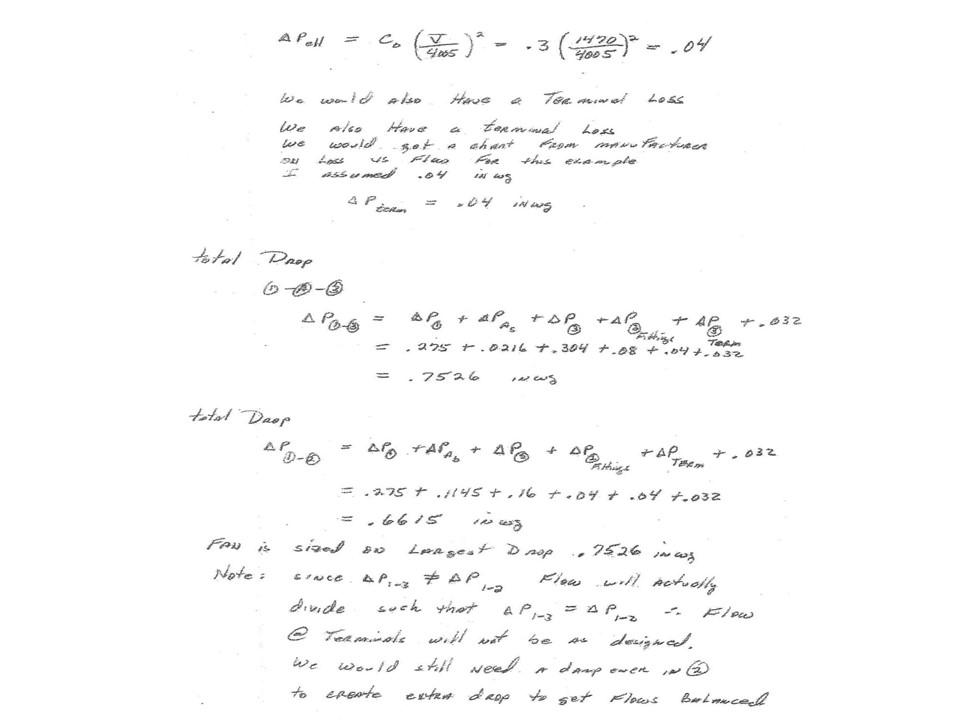 ΔP ell = C₀ (V/4005)² = .3 (1470/4005)² = .04
We would also Have a Terminal Loss
We Also Have a terminal Loss
We would get a chart From manufacturer
on Loss vs Flow For this example
I assumed .04 in wg
ΔP term = .04 in wg
total Drop
①-Ⓐ-③
ΔP①-③ = ΔP① + ΔP As + ΔP③ + ΔP③ Fittings + ΔP③ TERM + .032
= .275 + .0216 + .304 + .08 + .04 + .032
= .7526 in wg
total Drop
ΔP①-② = ΔP① + ΔP Ab + ΔP② + ΔP② Fittings + ΔP TERM + .032
= .275 + .1145 + .16 + .04 + .04 + .032
= .6615 in wg
FAN is sized on Largest Drop .7526 in wg
Note: since ΔP1-3 ≠ ΔP1-2 Flow will Actually
divide such that ΔP1-3 = ΔP1-2 ∴ Flow
@ Terminals will not be as designed.
We would still need a dampener in ②
to create extra drop to get Flows Balanced